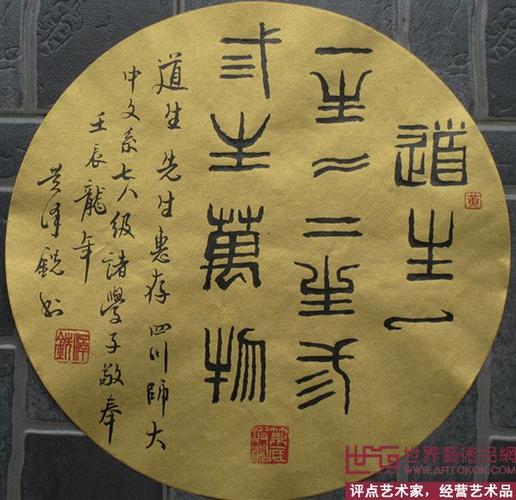 道生一
一生二二生弎
弎生萬物
道生 先生惠存 四川師大
中文系七八级諸學子敬奉
壬辰龍年
黄泽锐书
黄
澤銳
世界藝術品網
WWW.ARTOKOK.COM
评点艺术家、经营艺术品